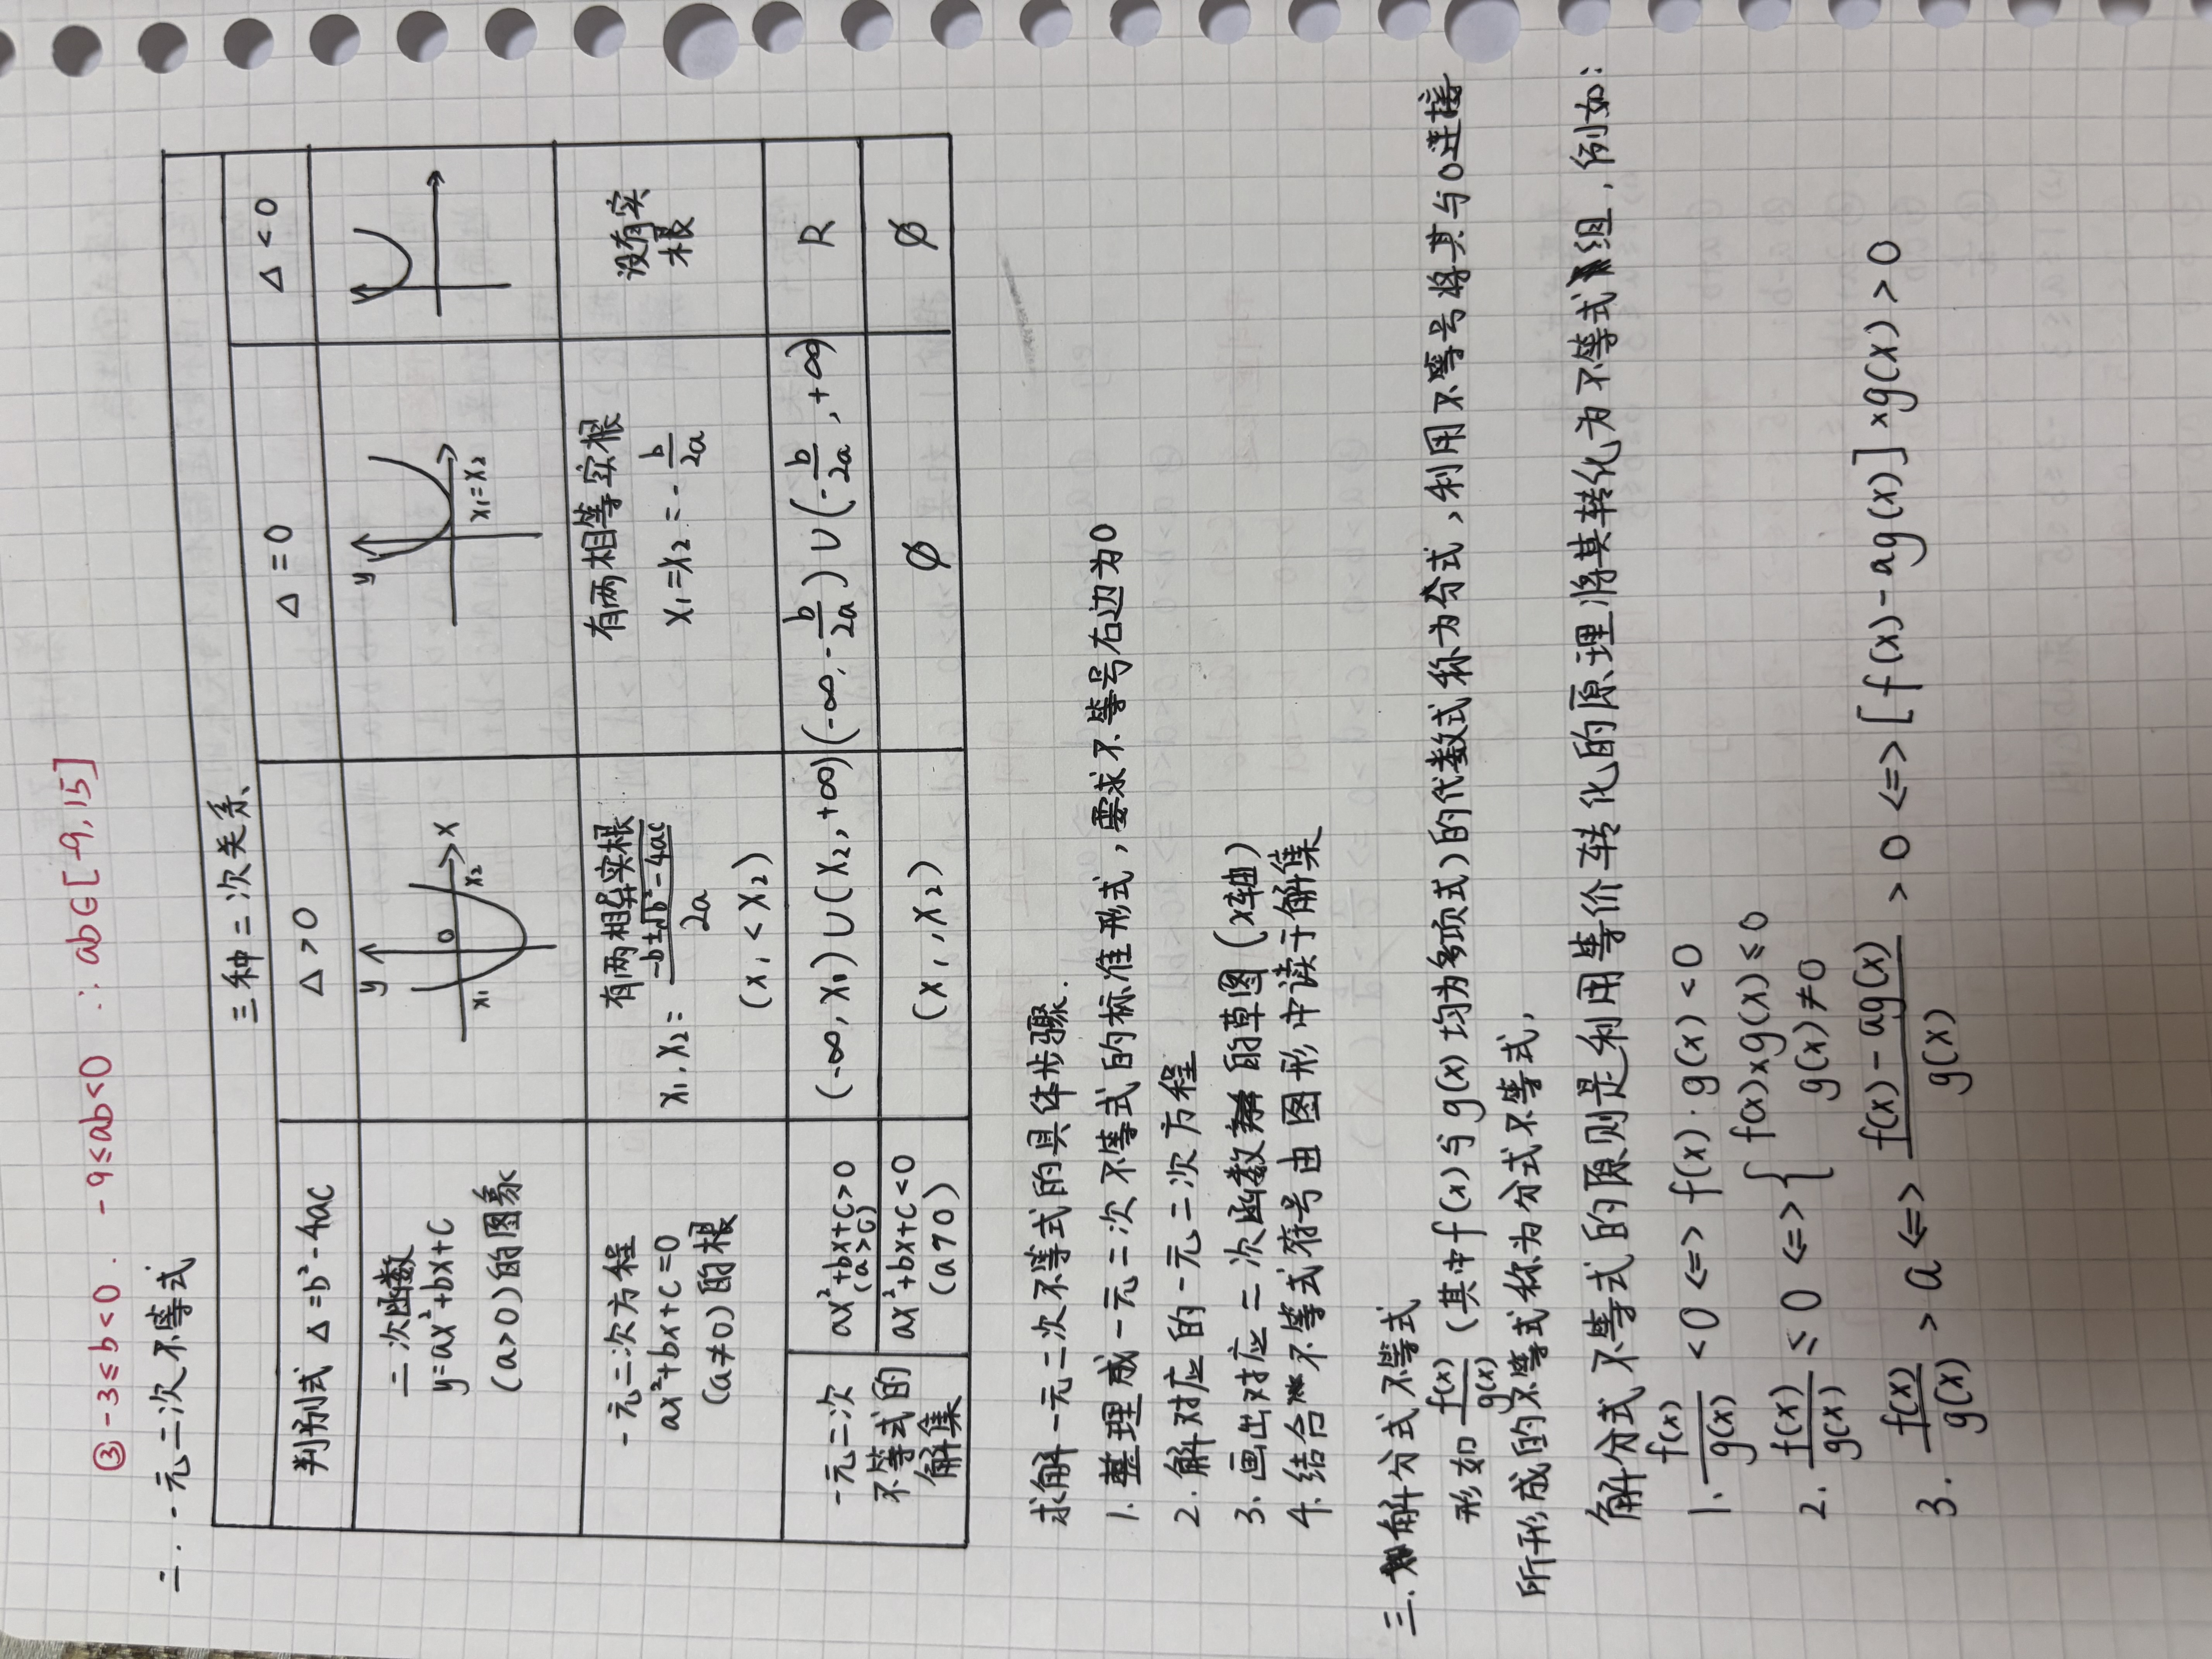 ③ -3≤b<0. -9≤ab<0 ∴ ab∈[-9,15]
二. 一元二次不等式
三种二次关系
判别式 Δ=b²-4ac Δ>0 Δ=0 Δ<0
二次函数
y=ax²+bx+c
(a>0)的图象
y 0 x x₁ x₂
y x₁=x₂
一元二次方程
ax²+bx+c=0
(a≠0)的根
有两相异实根
x₁,x₂= (-b±√b²-4ac)/2a
(x₁<x₂)
有两相等实根
x₁=x₂=-b/2a
没有实
根
一元二次
不等式的
解集
ax²+bx+c>0
(a>c)
(-∞,x₁)∪(x₂,+∞) (-∞,-b/2a)∪(-b/2a,+∞) R
ax²+bx+c<0
(a>0)
(x₁,x₂) ∅ ∅
求解一元二次不等式的具体步骤.
1. 整理成一元二次不等式的标准形式,要求不等号右边为0
2. 解对应的一元二次方程
3. 画出对应二次函数的草图(x轴)
4. 结合不等式符号由图形中读于解集
三. 解分式不等式
形如 f(x)/g(x) (其中f(x)与g(x)均为多项式)的代数式称为分式、利用不等号将其与0连接
所形成的不等式称为分式不等式,
解分式不等式的原则是利用等价转化的原理将其转化为不等式组,例如:
1. f(x)/g(x) <0 <=> f(x)·g(x)<0
2. f(x)/g(x) ≤0 <=> { f(x)×g(x)≤0
g(x)≠0
3. f(x)/g(x) >a <=> (f(x)-ag(x))/g(x) >0 <=> [f(x)-ag(x)]×g(x)>0